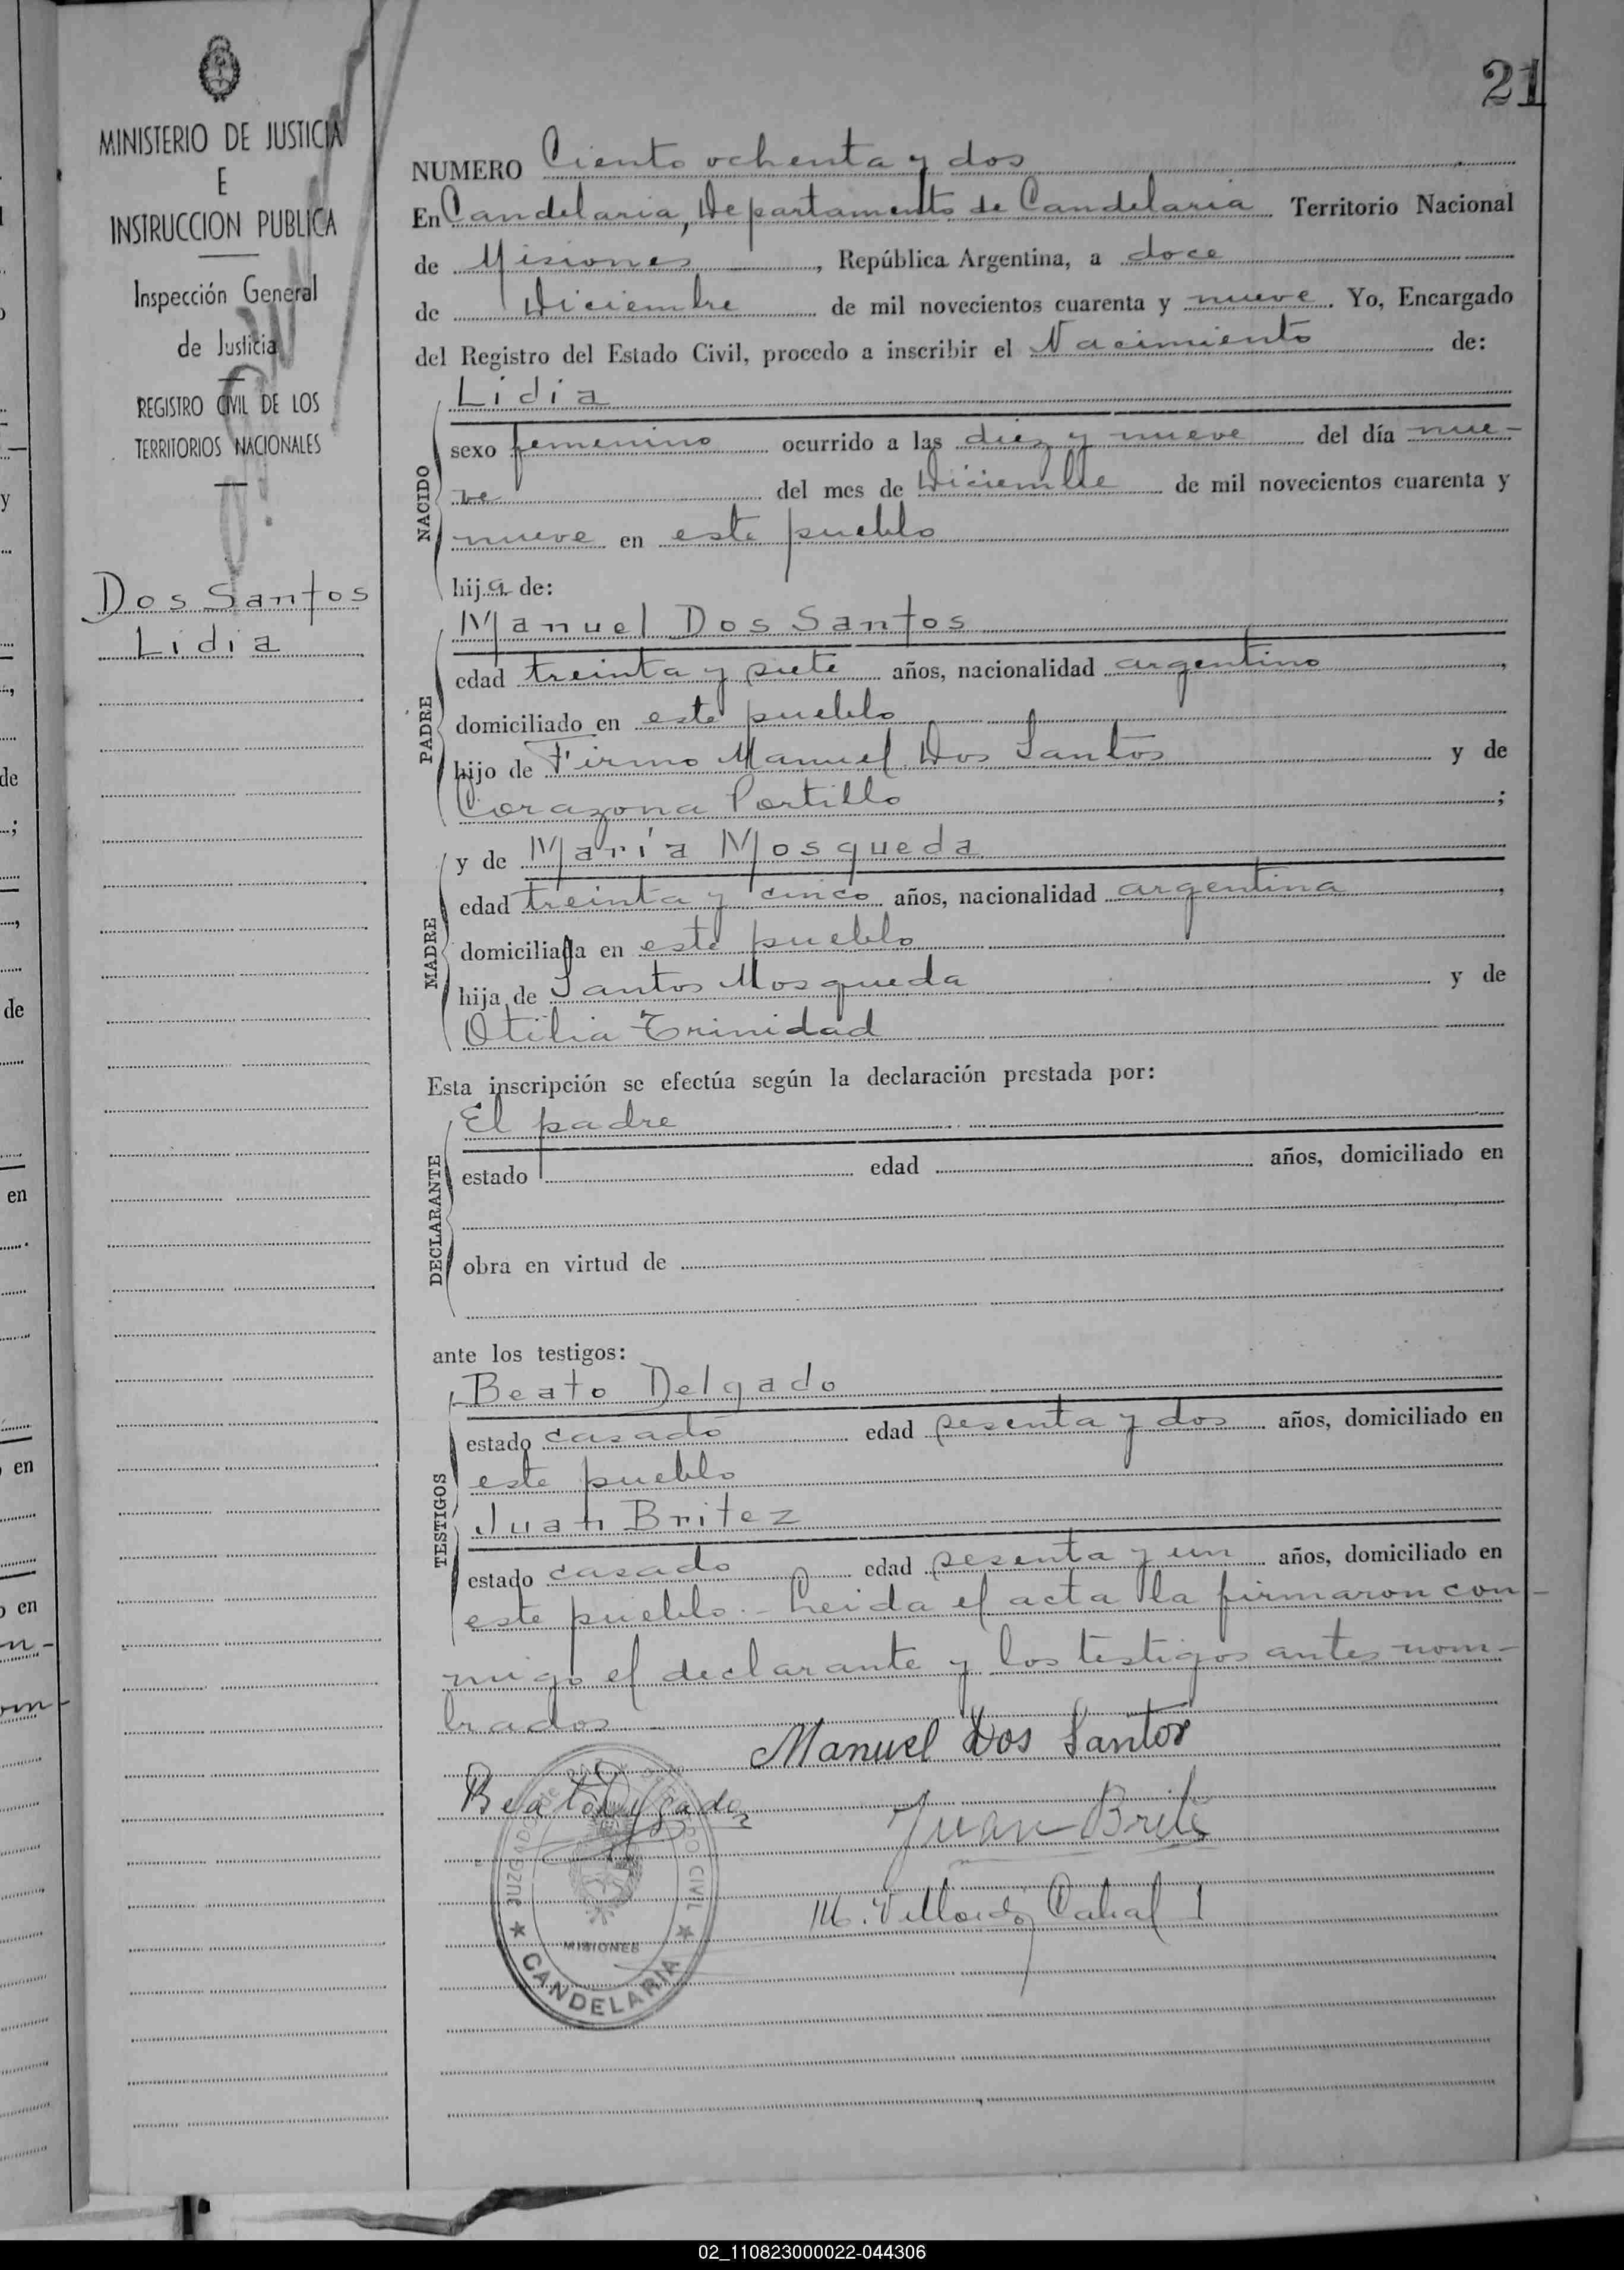 MINISTERIO DE JUSTICIA
E
INSTRUCCION PUBLICA
Inspección General
de Justicia
REGISTRO CIVIL DE LOS
TERRITORIOS NACIONALES
Dos Santos
Lidia
21
NUMERO Ciento ochenta y dos
En Candelaria, Departamento de Candelaria Territorio Nacional
de Misiones, República Argentina, a doce
de Diciembre de mil novecientos cuarenta y nueve. Yo, Encargado
del Registro del Estado Civil, procedo a inscribir el Nacimiento de:
NACIDO
Lidia
sexo femenino ocurrido a las diez y nueve del día nue-
ve del mes de Diciembre de mil novecientos cuarenta y
nueve en este pueblo
hija de:
PADRE
Manuel Dos Santos
edad treinta y siete años, nacionalidad argentino,
domiciliado en este pueblo
hijo de Firmo Manuel Dos Santos y de
Corazona Portillo;
MADRE
y de María Mosqueda
edad treinta y cinco años, nacionalidad argentina,
domiciliada en este pueblo
hija de Santos Mosqueda y de
Otilia Trinidad
Esta inscripción se efectúa según la declaración prestada por:
DECLARANTE
El padre
estado edad años, domiciliado en
obra en virtud de
ante los testigos:
TESTIGOS
Beato Delgado
estado casado edad sesenta y dos años, domiciliado en
este pueblo
Juan Britez
estado casado edad sesenta y un años, domiciliado en
este pueblo.- Leida el acta la firmaron con-
migo el declarante y los testigos antes nom-
brados.
Manuel Dos Santos
Beato Delgado
Juan Brite
M. Cabal
CIVIL
MISIONES
CANDELARIA
02_110823000022-044306